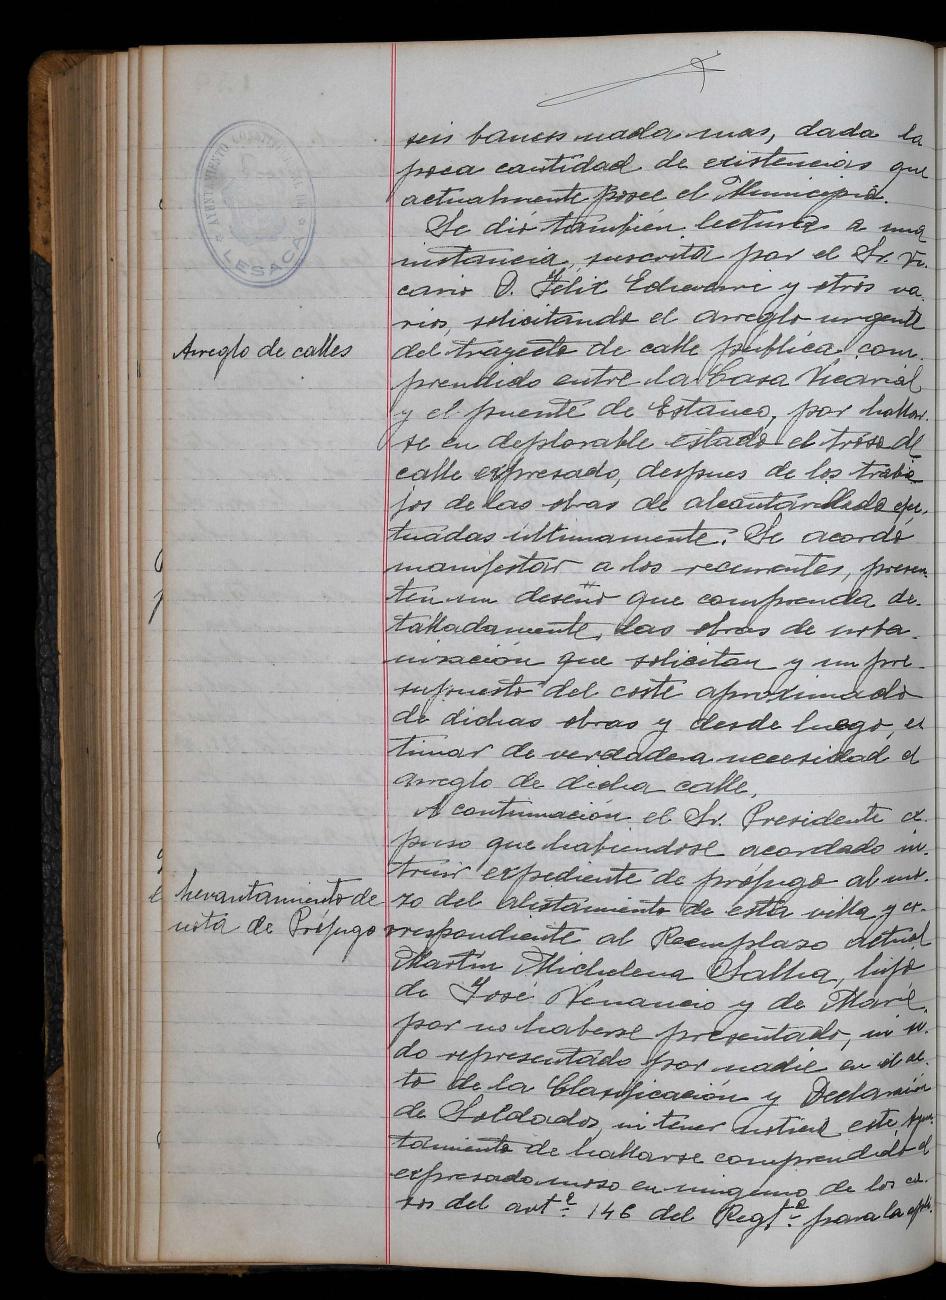 seis bancos nada mas, dada la
poca cantidad de existencias que
actualmente posee el Municipio.
Se dió también lectura a una
instancia, suscrita por el Sr. Vi-
cario D. Félix Echeverri y otros va-
rios, solicitando el arreglo urgente
Arreglo de calles
del trayecto de calle publica, com-
prendido entre la Casa Vicarial
y el puente de Estanco, por hallar-
se en deplorable estado el trozo de
calle expresado, despues de los traba-
jos de las obras de alcantarillado efec-
tuadas últimamente. Se acordó
manifestar a los recurrentes, presen-
ten un deseño que comprenda de-
talladamente, las obras de urba-
nización que solicitan y un pre-
supuesto del coste aproximado
de dichas obras y desde luego, es
timar de verdadera necesidad el
arreglo de dicha calle.
A continuación el Sr. Presidente ex-
puso que habiendose acordado ins-
truir expediente de prófugo al mo-
Levantamiento de
nota de Prófugo
zo del alistamiento de esta villa y co-
rrespondiente al Reemplazo actual
Martín Michelena Salha, hijo
de José Venancio y de María
por no haberse presentado, ni si-
do representado por nadie en el ac-
to de la Clasificación y Declaración
de Soldados, ni tener noticia este Ayun-
tamiento de hallarse comprendido el
expresado mozo en ninguno de los ca-
sos del artº 146 del Regtº para la apli-
AYUNTAMIENTO CONSTITUCIONAL DE
LESACA